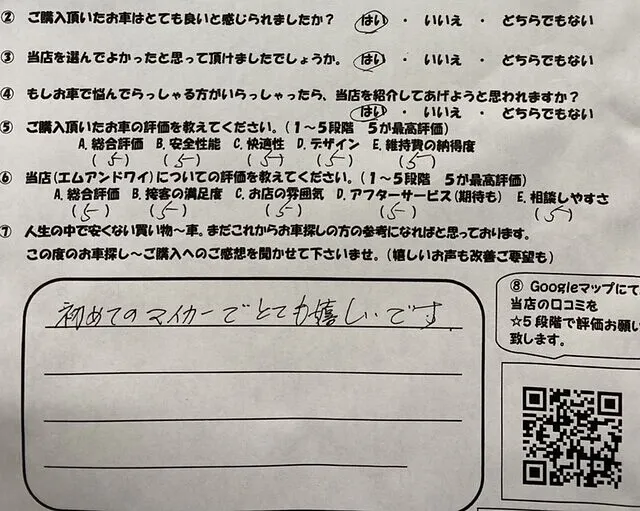 ② ご購入頂いたお車はとても良いと感じられましたか？ はい ・ いいえ ・ どちらでもない
③ 当店を選んでよかったと思って頂けましたでしょうか。 はい ・ いいえ ・ どちらでもない
④ もしお車で悩んでらっしゃる方がいらっしゃったら、当店を紹介してあげようと思われますか？
はい ・ いいえ ・ どちらでもない
⑤ ご購入頂いたお車の評価を教えてください。(１～５段階 ５が最高評価)
A. 総合評価 B. 安全性能 C. 快適性 D. デザイン E. 維持費の納得度
(5) (5) (5) (5) (5)
⑥ 当店(エムアンドワイ)についての評価を教えてください。(１～５段階 ５が最高評価)
A. 総合評価 B. 接客の満足度 C. お店の雰囲気 D. アフターサービス(期待も) E. 相談しやすさ
(5) (5) (5) (5) (5)
⑦ 人生の中で安くない買い物～車。まだこれからお車探しの方の参考になればと思っております。
この度のお車探し～ご購入へのご感想を聞かせて下さいませ。(嬉しいお声も改善ご要望も)
初めてのマイカーでとても嬉しいです。
⑧ Googleマップにて
当店の口コミを
☆５段階で評価お願い
致します。